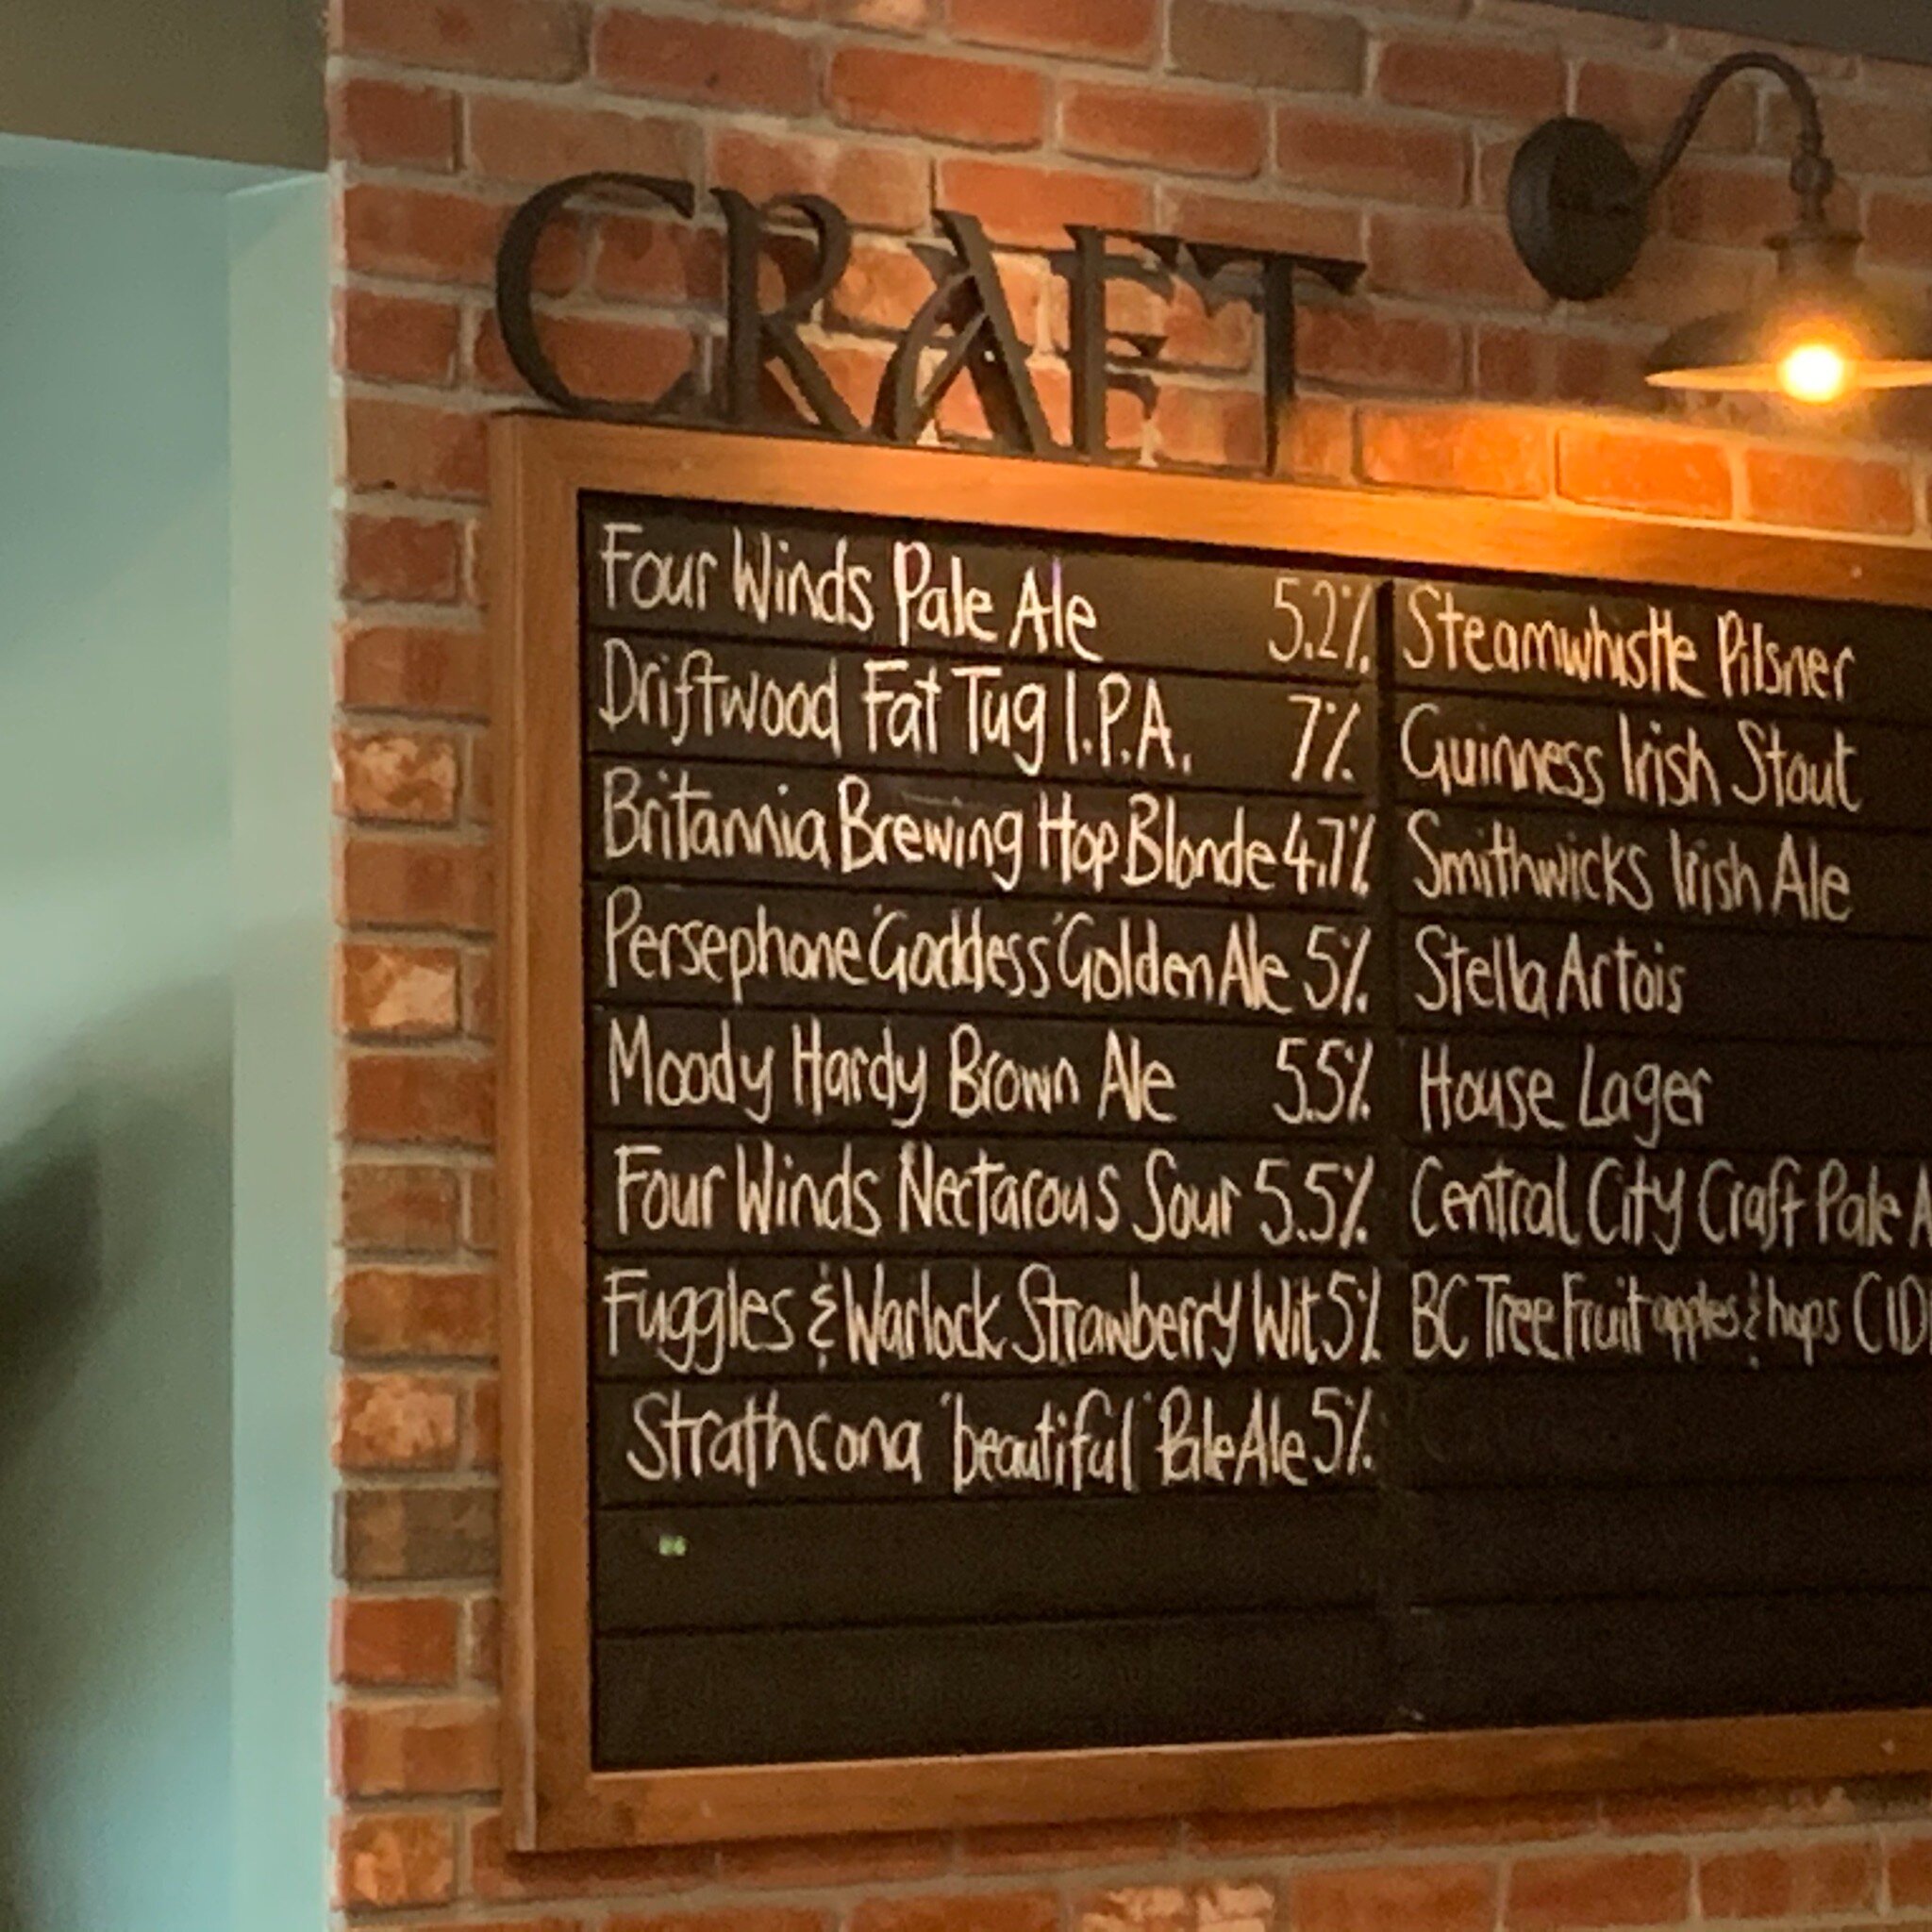 CRAFT
Four Winds Pale Ale 5.2%
Driftwood Fat Tug I.P.A. 7%
Britannia Brewing Hop Blonde 4.7%
Persephone "Goddess" Golden Ale 5%
Moody Hardy Brown Ale 5.5%
Four Winds Nectarous Sour 5.5%
Fuggles & Warlock Strawberry Wit 5%
Strathcona "beautiful" Pale Ale 5%
Steamwhistle Pilsner
Guinness Irish Stout
Smithwicks Irish Ale
Stella Artois
House Lager
Central City Craft Pale A
BC Tree Fruit apples & hops CID